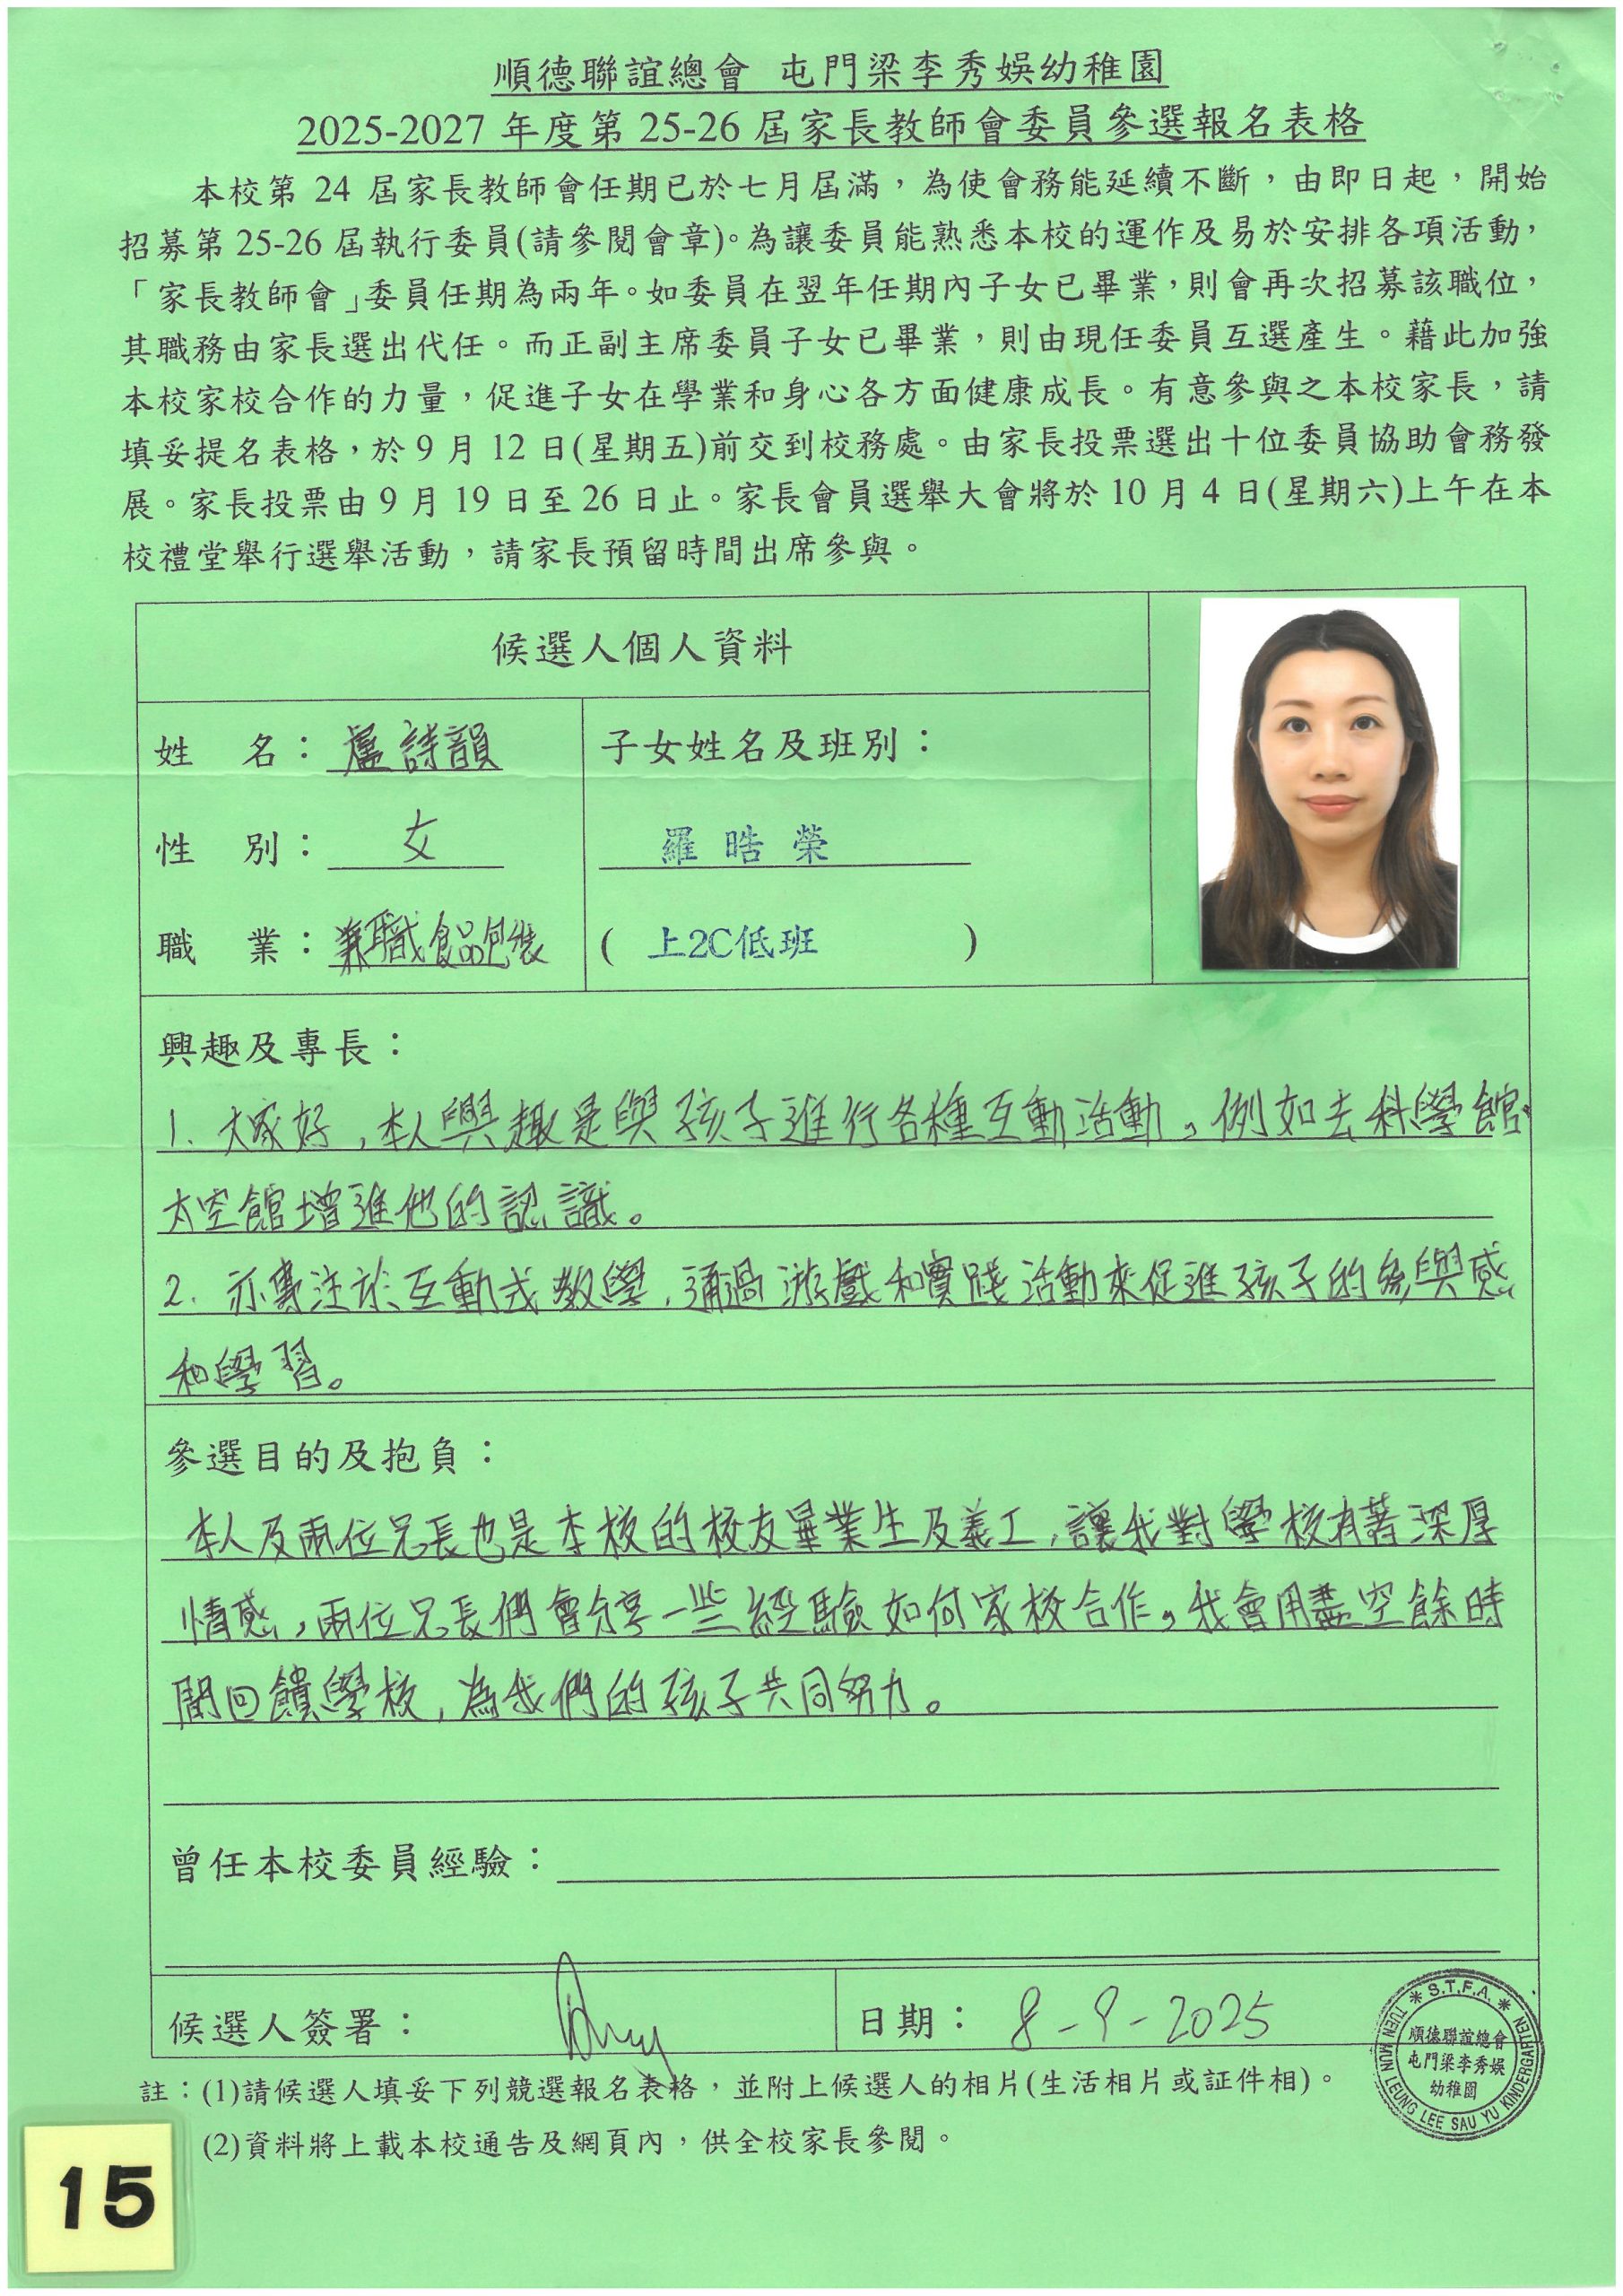 順德聯誼總會 屯門梁李秀娛幼稚園
2025-2027 年度第 25-26 屆家長教師會委員參選報名表格
本校第 24 屆家長教師會任期已於七月屆滿，為使會務能延續不斷，由即日起，開始
招募第 25-26 屆執行委員(請參閱會章)。為讓委員能熟悉本校的運作及易於安排各項活動，
「家長教師會」委員任期為兩年。如委員在翌年任期內子女已畢業，則會再次招募該職位，
其職務由家長選出代任。而正副主席委員子女已畢業，則由現任委員互選產生。藉此加強
本校家校合作的力量，促進子女在學業和身心各方面健康成長。有意參與之本校家長，請
填妥提名表格，於 9 月 12 日(星期五)前交到校務處。由家長投票選出十位委員協助會務發
展。家長投票由 9 月 19 日至 26 日止。家長會員選舉大會將於 10 月 4 日(星期六)上午在本
校禮堂舉行選舉活動，請家長預留時間出席參與。
候選人個人資料
姓 名：盧詩韻
子女姓名及班別：
性 別：女
羅晧榮
職 業：兼職食品包裝
( 上2C低班 )
興趣及專長：
1. 大家好，本人興趣是與孩子進行各種互動活動，例如去科學館、
太空館增進他的認識。
2. 亦專注於互動式教學，通過游戲和實踐活動來促進孩子的參與感
和學習。
參選目的及抱負：
本人及兩位兄長也是本校的校友畢業生及義工，讓我對學校有著深厚
情感，兩位兄長們會分享一些經驗如何家校合作，我會用盡空餘時
間回饋學校，為我們的孩子共同努力。
曾任本校委員經驗：
候選人簽署：
日期：8-9-2025
註：(1)請候選人填妥下列競選報名表格，並附上候選人的相片(生活相片或証件相)。
(2)資料將上載本校通告及網頁內，供全校家長參閱。
* S.T.F.A. *
順德聯誼總會
屯門梁李秀娛
幼稚園
TUEN MUN LEUNG LEE SAU YU KINDERGARTEN
15